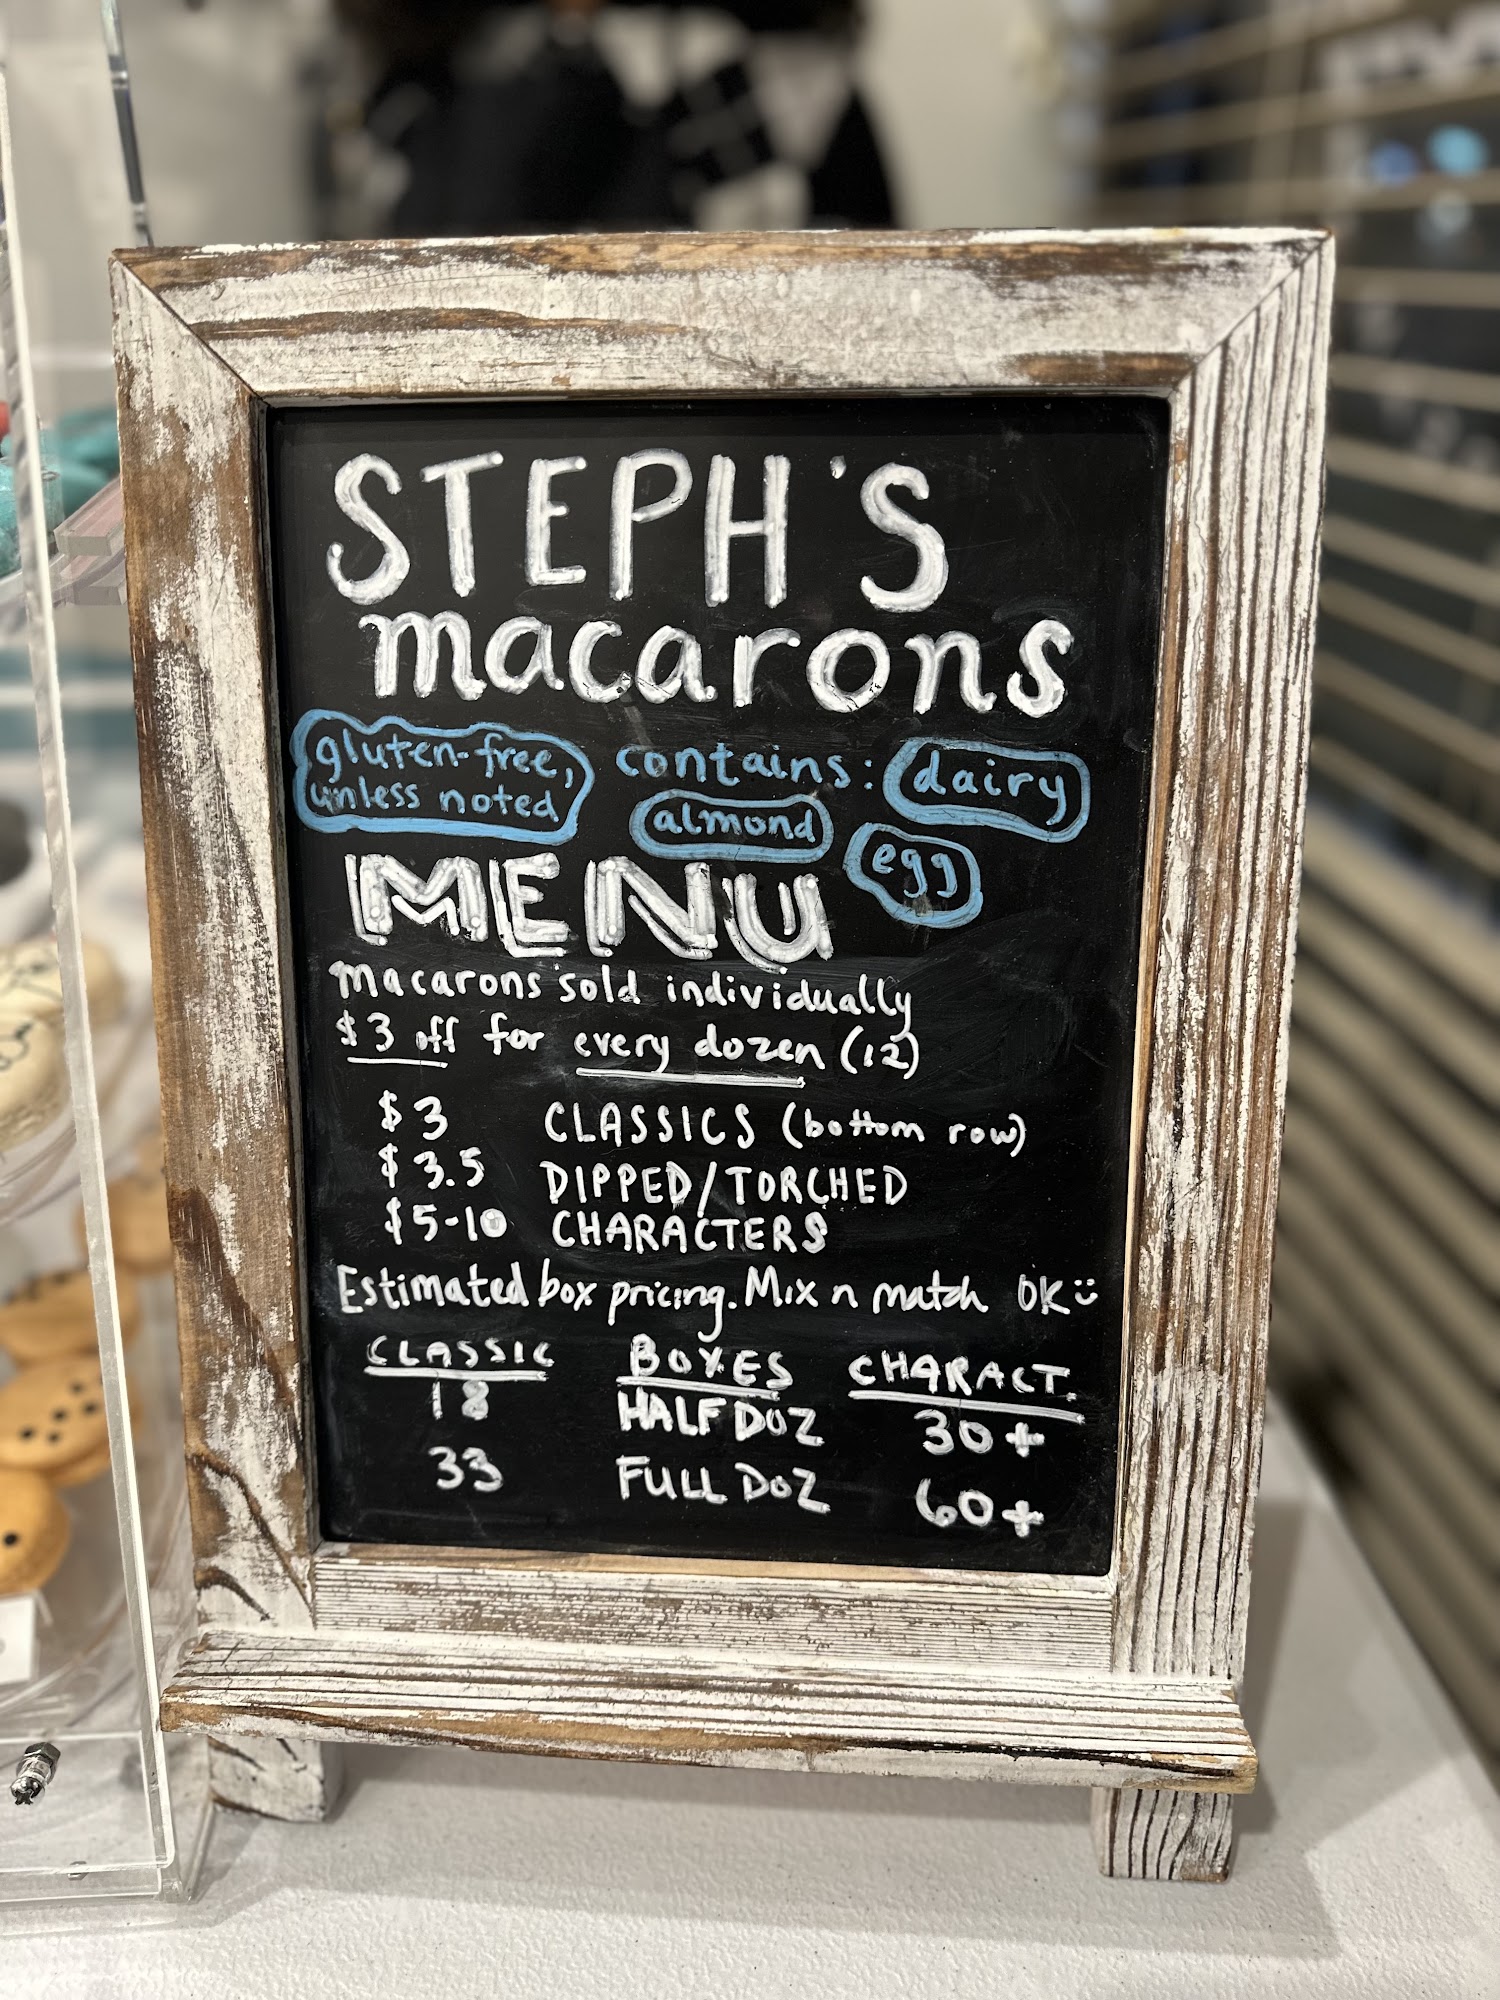 STEPH'S
macarons
gluten-free,
unless noted
contains: dairy
almond
egg
MENU
Macarons sold individually
$3 off for every dozen (12)
$3 CLASSICS (bottom row)
$3.5 DIPPED/TORCHED
$5-10 CHARACTERS
Estimated box pricing. Mix n match OK :)
CLASSIC BOXES CHARACT.
18 HALF DOZ 30+
33 FULL DOZ 60+